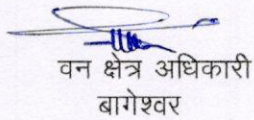 वन क्षेत्र अधिकारी
बागेश्वर